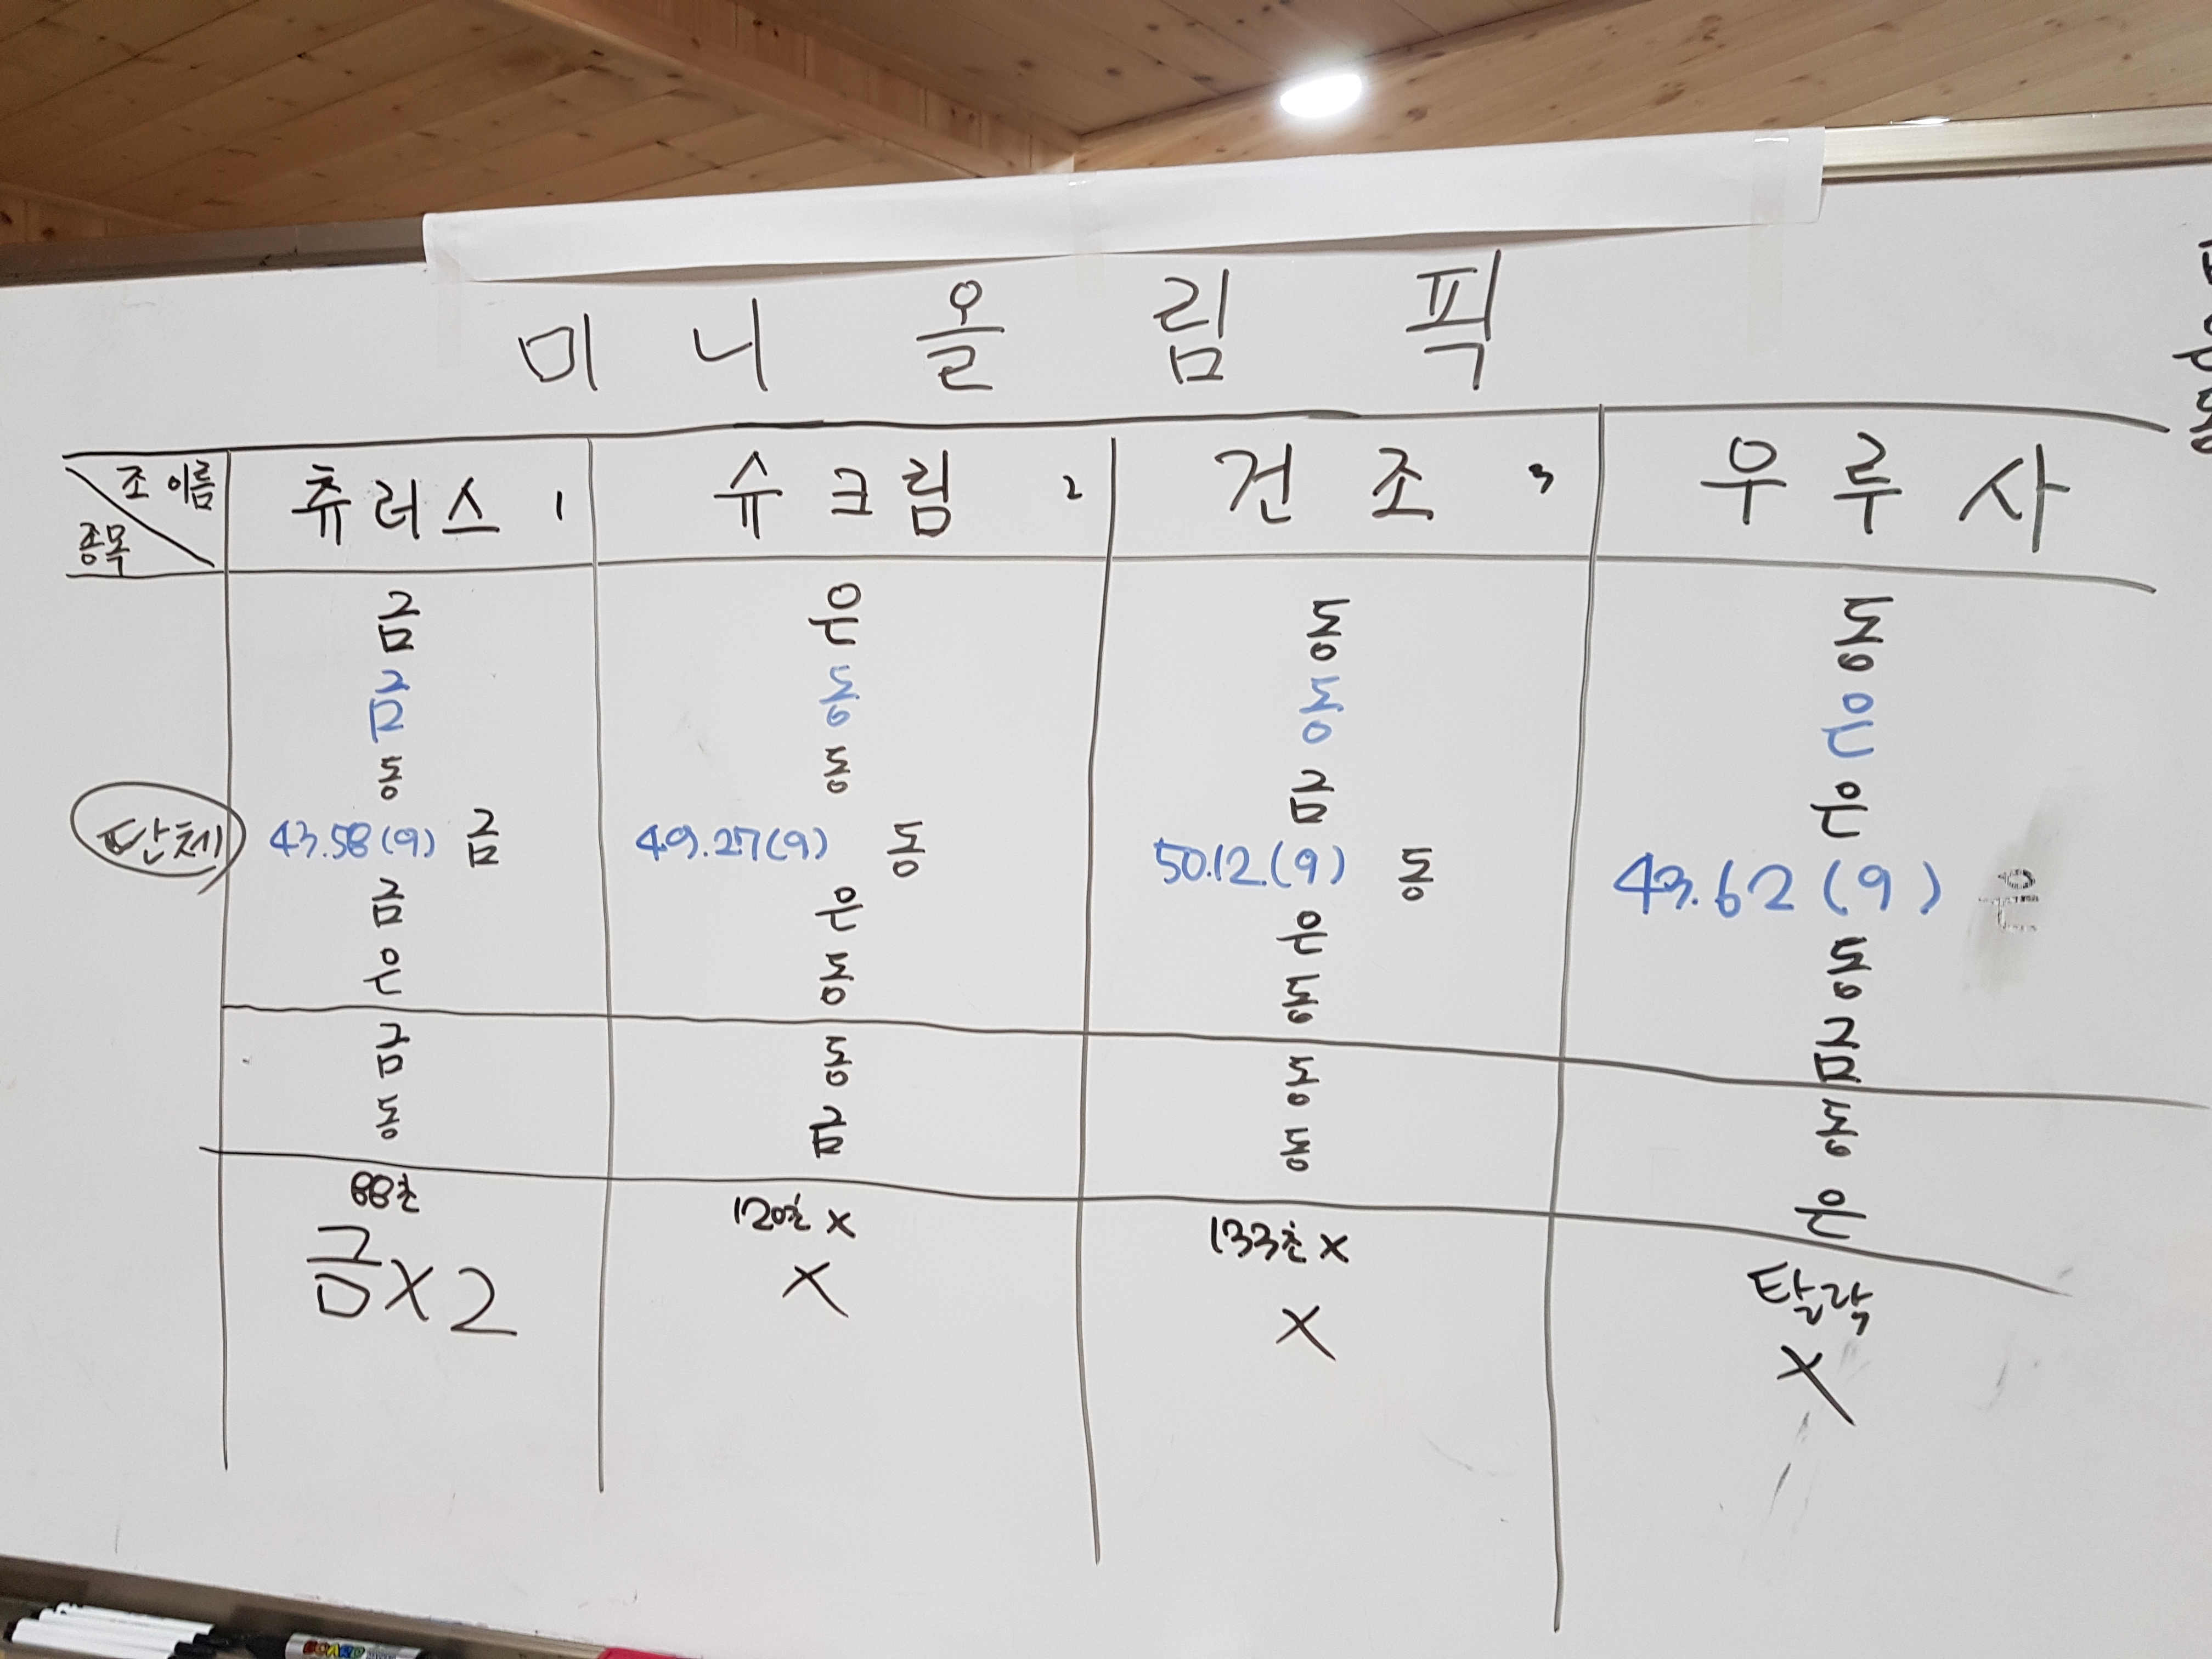 미니올림픽
조 이름 츄러스 1 슈크림 2 건조 3 우루사
종목
금 은 동 동
금 동 동 은
동 동 금 은
단체 43.58(9) 금 49.27(9) 동 50.12(9) 동 43.62(9) 은
금 은 은 동
은 동 동 금
금 동 동 동
동 금 동 은
88초 120초 X 133초 X 탈락
금X2 X X X
BOARD